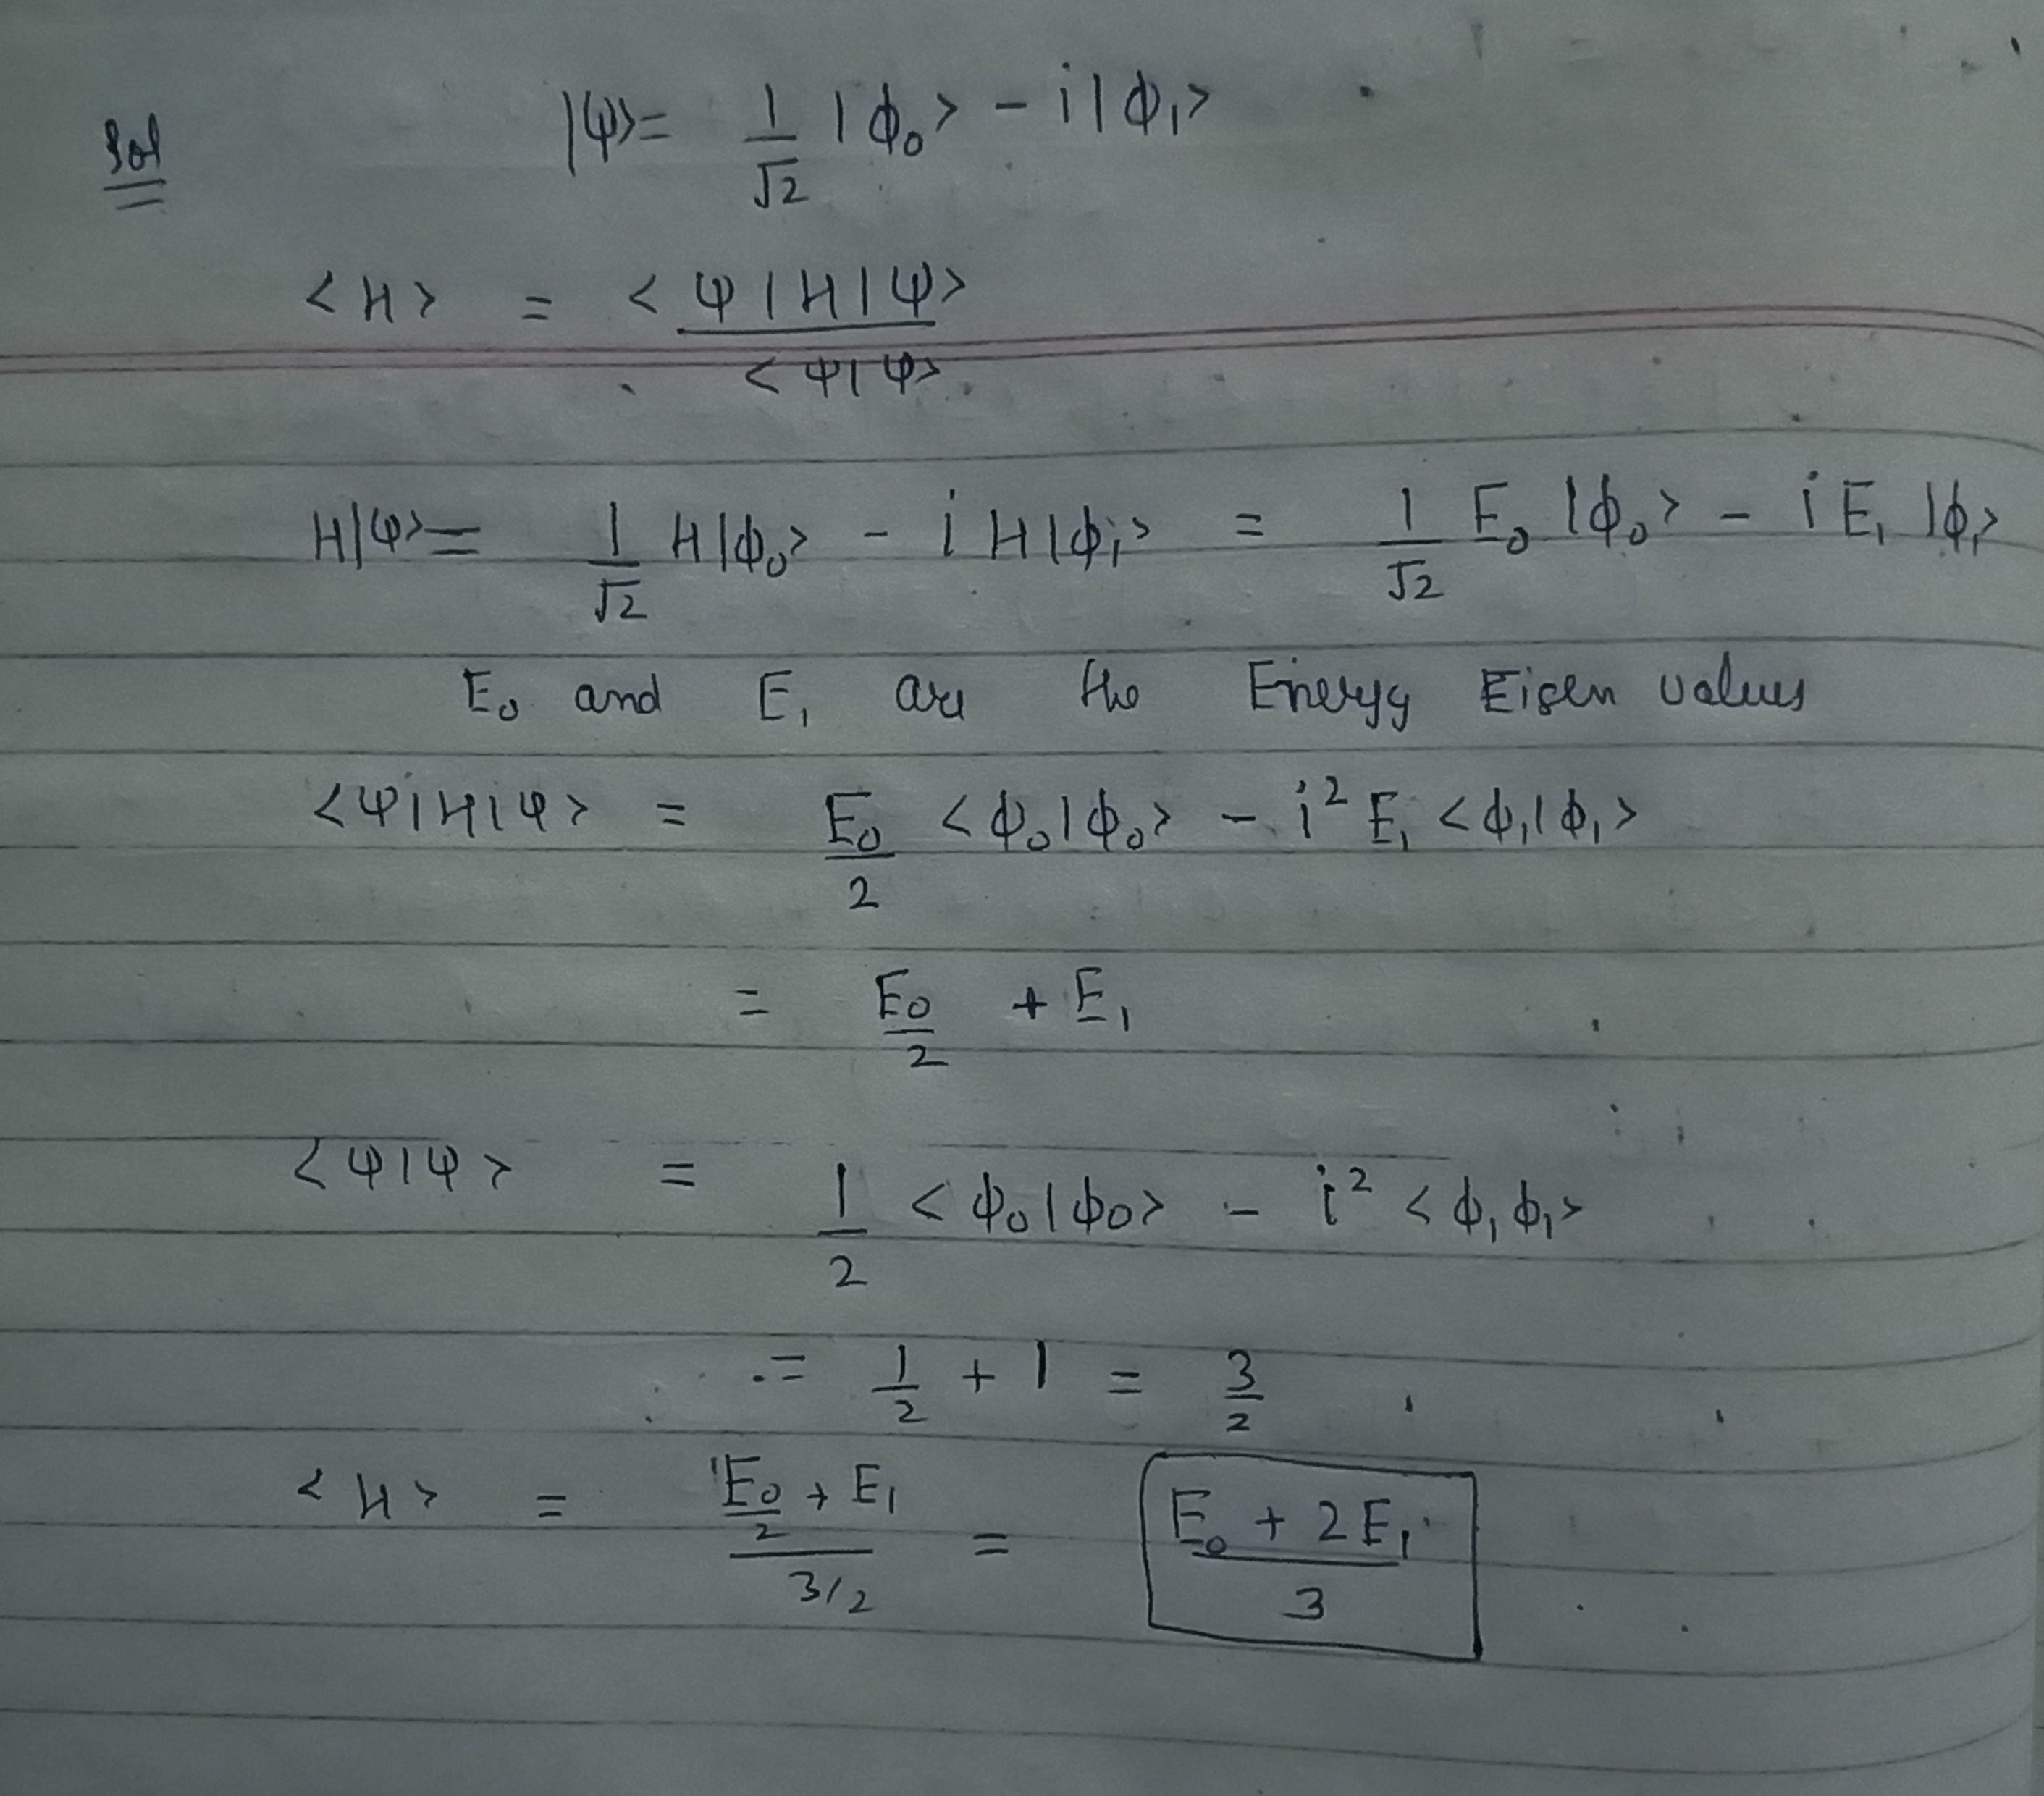 Sol |ψ> = 1/√2 |ϕ₀> - i|ϕ₁>
<H> = <ψ|H|ψ> / <ψ|ψ>
H|ψ> = 1/√2 H|ϕ₀> - i H|ϕ₁> = 1/√2 E₀ |ϕ₀> - i E₁ |ϕ₁>
E₀ and E₁ are the Energy Eigen values
<ψ|H|ψ> = E₀/2 <ϕ₀|ϕ₀> - i² E₁ <ϕ₁|ϕ₁>
= E₀/2 + E₁
<ψ|ψ> = 1/2 <ϕ₀|ϕ₀> - i² <ϕ₁ ϕ₁>
= 1/2 + 1 = 3/2
<H> = (E₀/2 + E₁) / (3/2) = (E₀ + 2E₁) / 3